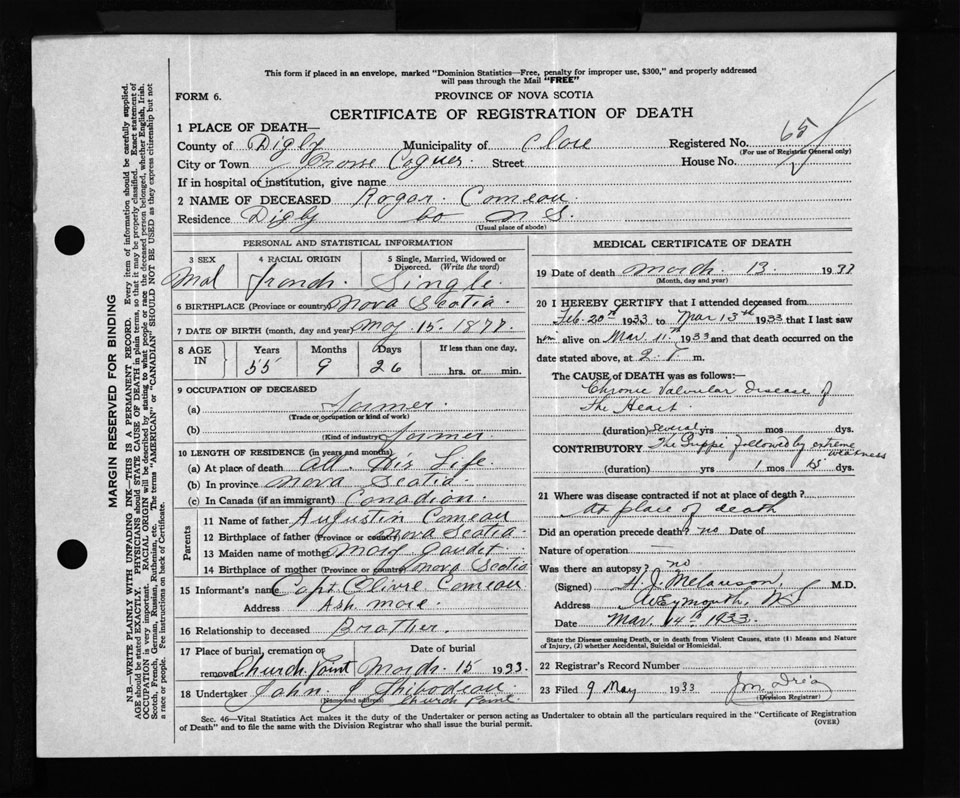 This form if placed in an envelope, marked "Dominion Statistics—Free, penalty for improper use, $300," and properly addressed
will pass through the Mail "FREE"
FORM 6.
PROVINCE OF NOVA SCOTIA
CERTIFICATE OF REGISTRATION OF DEATH
1 PLACE OF DEATH—
County of Digby Municipality of Clare Registered No. 65
(For use of Registrar General only)
City or Town Grosse Coques. Street House No.
If in hospital or institution, give name
2 NAME OF DECEASED Rogar. Comeau.
Residence Digby Co N S.
(Usual place of abode)
PERSONAL AND STATISTICAL INFORMATION
3 SEX 4 RACIAL ORIGIN 5 Single, Married, Widowed or Divorced. (Write the word)
Mal French. Single.
6 BIRTHPLACE (Province or country) Nova Scotia.
7 DATE OF BIRTH (month, day and year) May. 15. 1877.
8 AGE IN Years Months Days If less than one day,
55 9 26 hrs. or min.
9 OCCUPATION OF DECEASED
(a) farmer.
(Trade or occupation or kind of work)
(b) farmer.
(Kind of industry)
10 LENGTH OF RESIDENCE (in years and months)
(a) At place of death all. His Life.
(b) In province Nova Scotia.
(c) In Canada (if an immigrant) Canadian.
Parents
11 Name of father Augustin Comeau
12 Birthplace of father (Province or country) Nova Scotia.
13 Maiden name of mother Mary Gaudet.
14 Birthplace of mother (Province or country) Nova Scotia
15 Informant's name Capt Olivie Comeau
Address Ash more.
16 Relationship to deceased Brother.
17 Place of burial, cremation or removal Date of burial
Church Point March. 15 1933.
18 Undertaker John. J Thibodeau
(Name and address) Church Point
MEDICAL CERTIFICATE OF DEATH
19 Date of death March. 13. 1933
(Month, day and year)
20 I HEREBY CERTIFY that I attended deceased from
Feb. 20th 1933 to Mar 13th 1933 that I last saw
him alive on Mar. 11.th 1933 and that death occurred on the
date stated above, at 2. P. m.
The CAUSE of DEATH was as follows:—
Chronic Valvular Disease of
The Heart.
(duration) Several yrs mos dys.
CONTRIBUTORY The Grippe followed by extreme
weakness
(duration) yrs 1 mos 15 dys.
21 Where was disease contracted if not at place of death?
At place of death
Did an operation precede death? no Date of
Nature of operation —
Was there an autopsy? no
(Signed) H. J. Melanson, M.D.
Address Weymouth, N.S
Date Mar. 14th 1933.
State the Disease causing Death, or in death from Violent Causes, state (1) Means and Nature
of Injury, (2) whether Accidental, Suicidal or Homicidal.
22 Registrar's Record Number
23 Filed 9 May 1933
(Division Registrar)
Sec. 46—Vital Statistics Act makes it the duty of the Undertaker or person acting as Undertaker to obtain all the particulars required in the "Certificate of Registration
of Death" and to file the same with the Division Registrar who shall issue the burial permit.
(OVER)
MARGIN RESERVED FOR BINDING
N.B.—WRITE PLAINLY WITH UNFADING INK—THIS IS A PERMANENT RECORD. Every item of information should be carefully supplied.
AGE should be stated EXACTLY. PHYSICIANS should STATE CAUSE OF DEATH in plain terms, so that it may be properly classified. Exact statement of
OCCUPATION is very important. RACIAL ORIGIN will be described by stating to what people or race the deceased person belonged, whether English, Irish,
Scotch, French, German, Russian, Ruthenian, etc. The terms "AMERICAN" or "CANADIAN" SHOULD NOT BE USED as they express citizenship but not
a race or people. Fee instructions on back of Certificate.